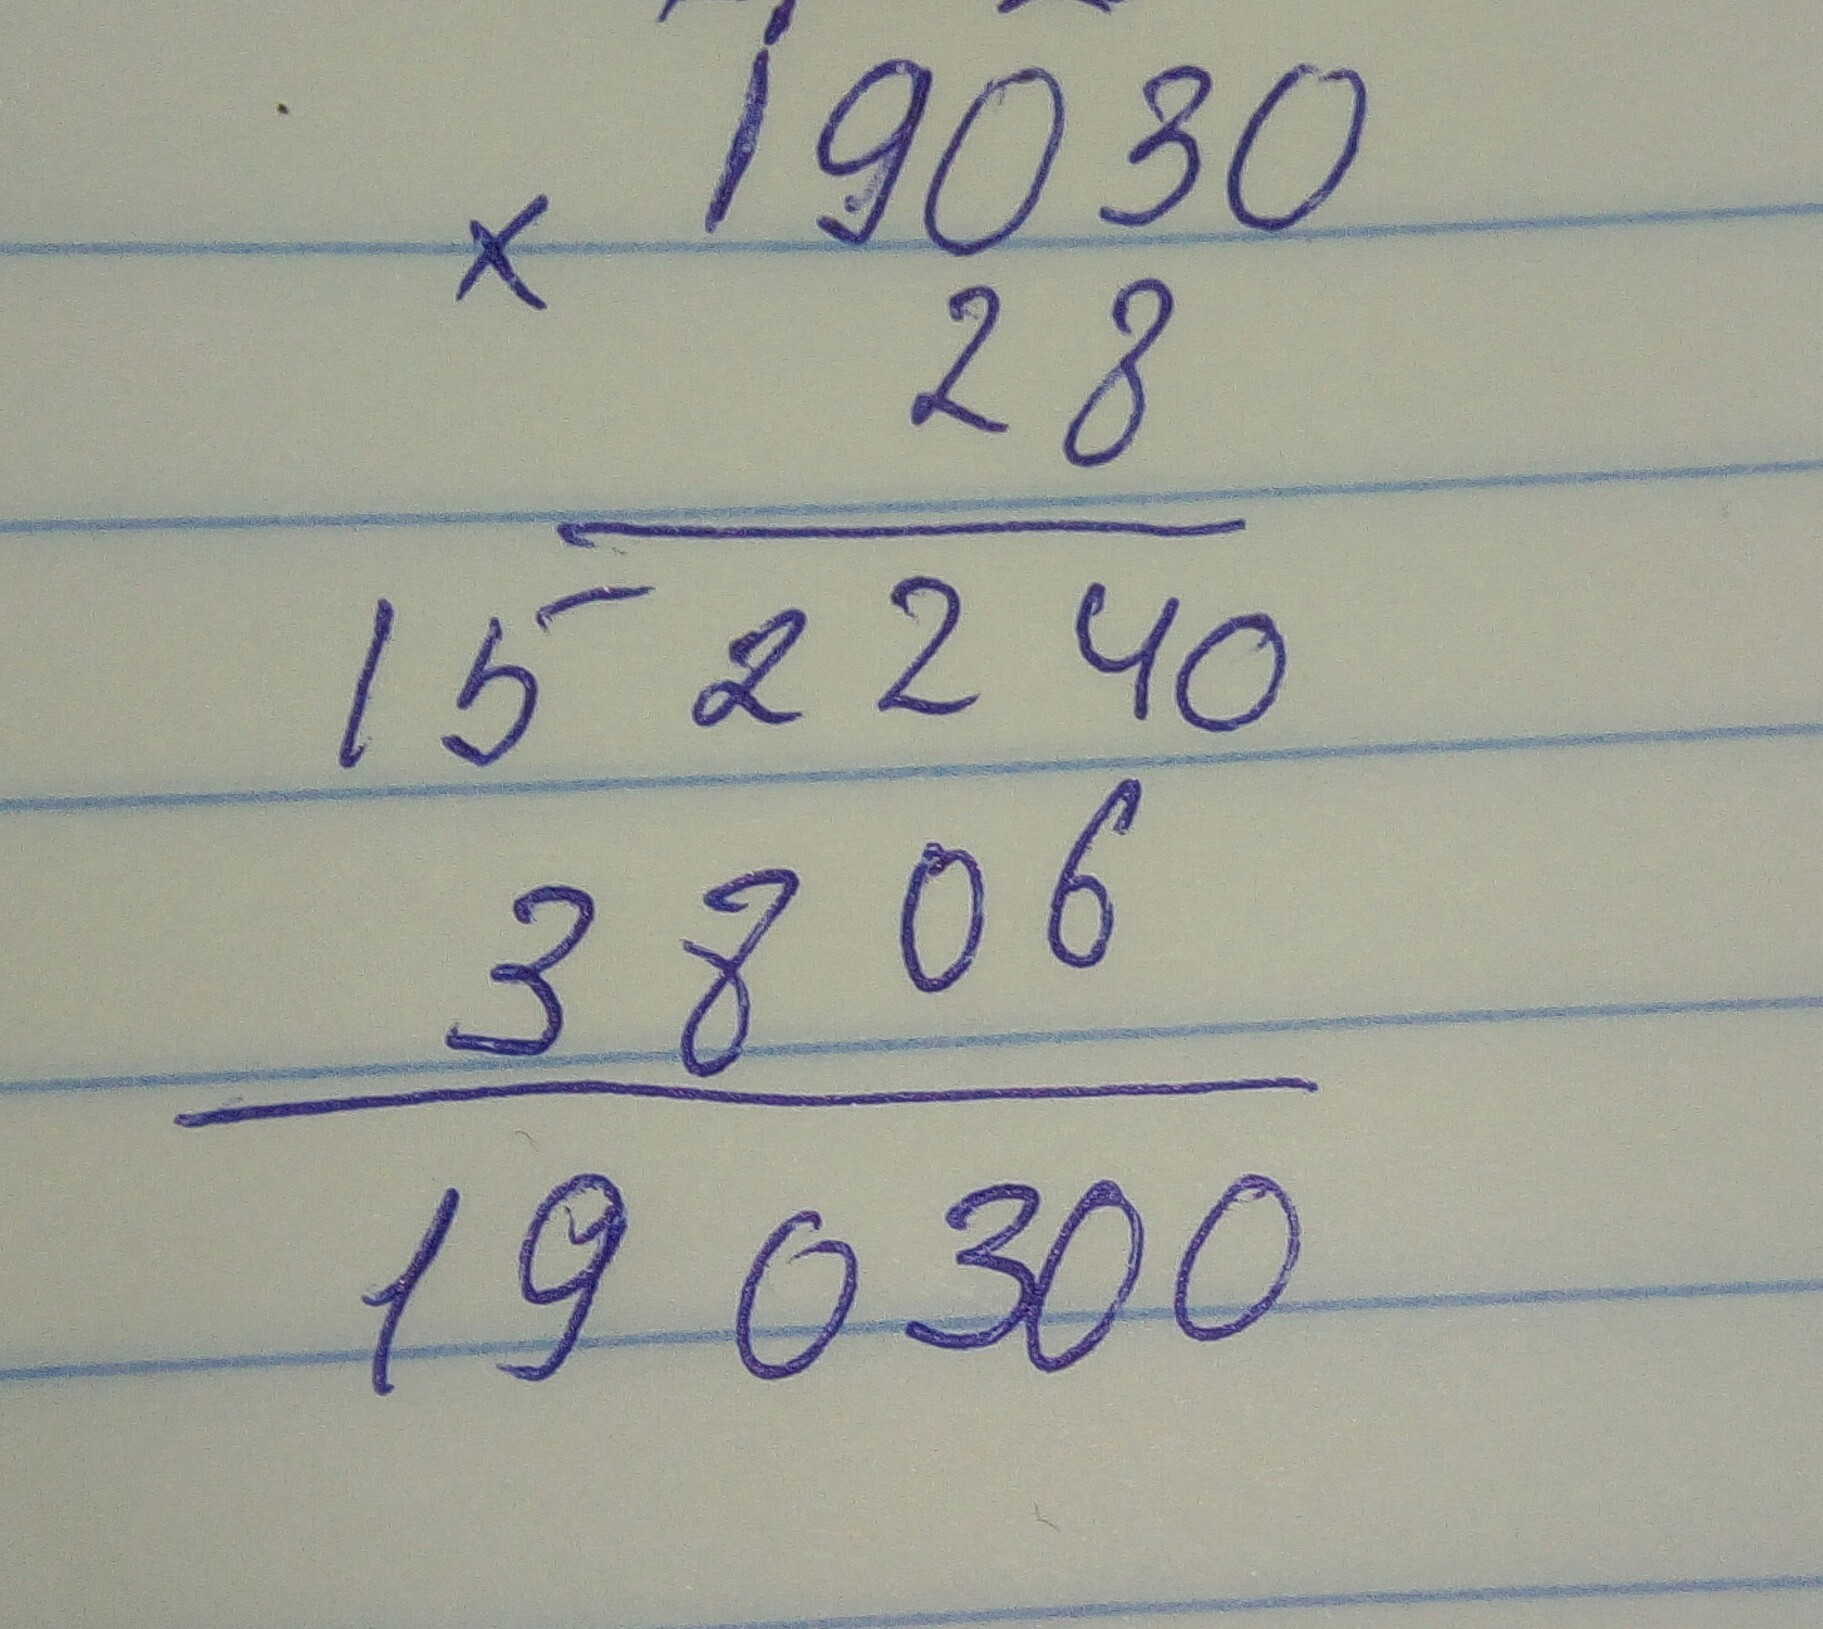 19030
×
28
152240
3806
190300